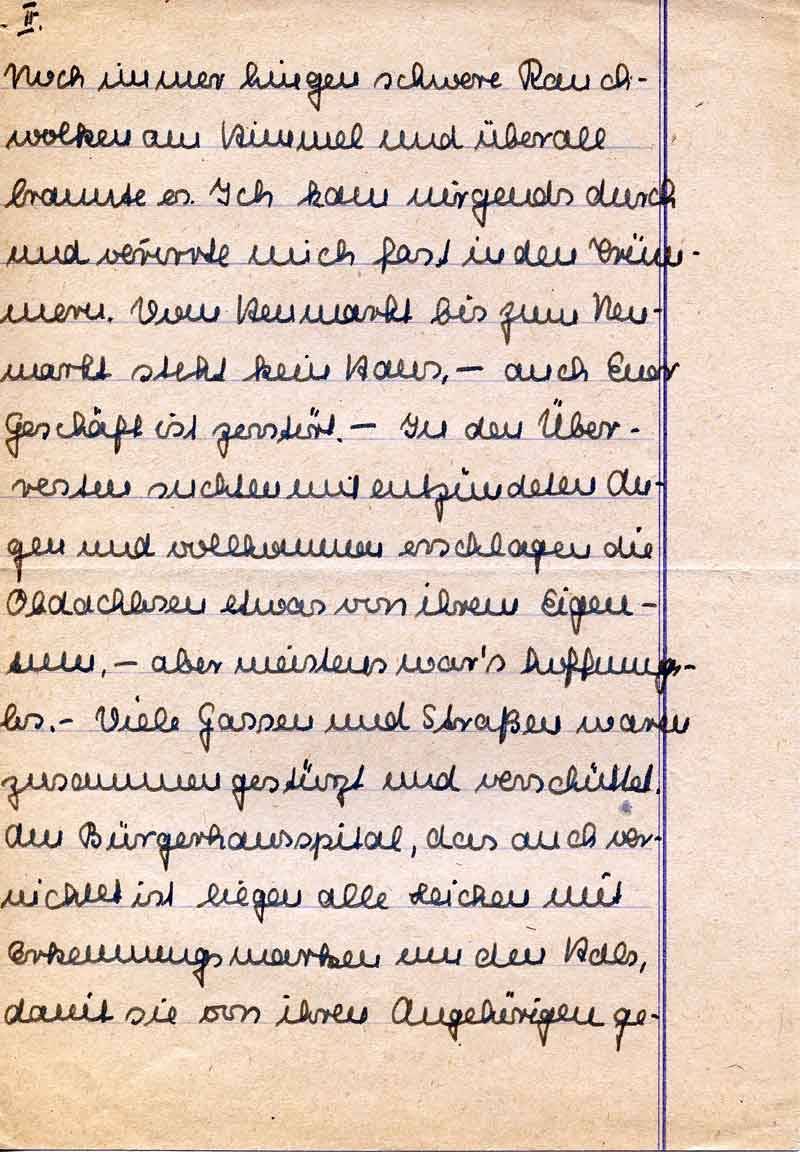 - II.
Noch immer hingen schwere Rauch-
wolken am Himmel und überall
brannte es. Ich kam nirgends durch
und verirrte mich fast in den Trüm-
mern. Vom Heumarkt bis zum Neu-
markt steht kein Haus, – auch Euer
Geschäft ist zerstört. – In den Über-
resten suchten mit entzündeten Au-
gen und vollkommen erschlagen die
Obdachlosen etwas von ihrem Eigen-
tum, – aber meistens war's hoffnungs-
los. – Viele Gassen und Straßen waren
zusammengestürzt und verschüttet.
Am Bürgerhausspital, das auch ver-
nichtet ist liegen alle Leichen mit
Erkennungsmarken um den Hals,
damit sie von ihren Angehörigen ge-